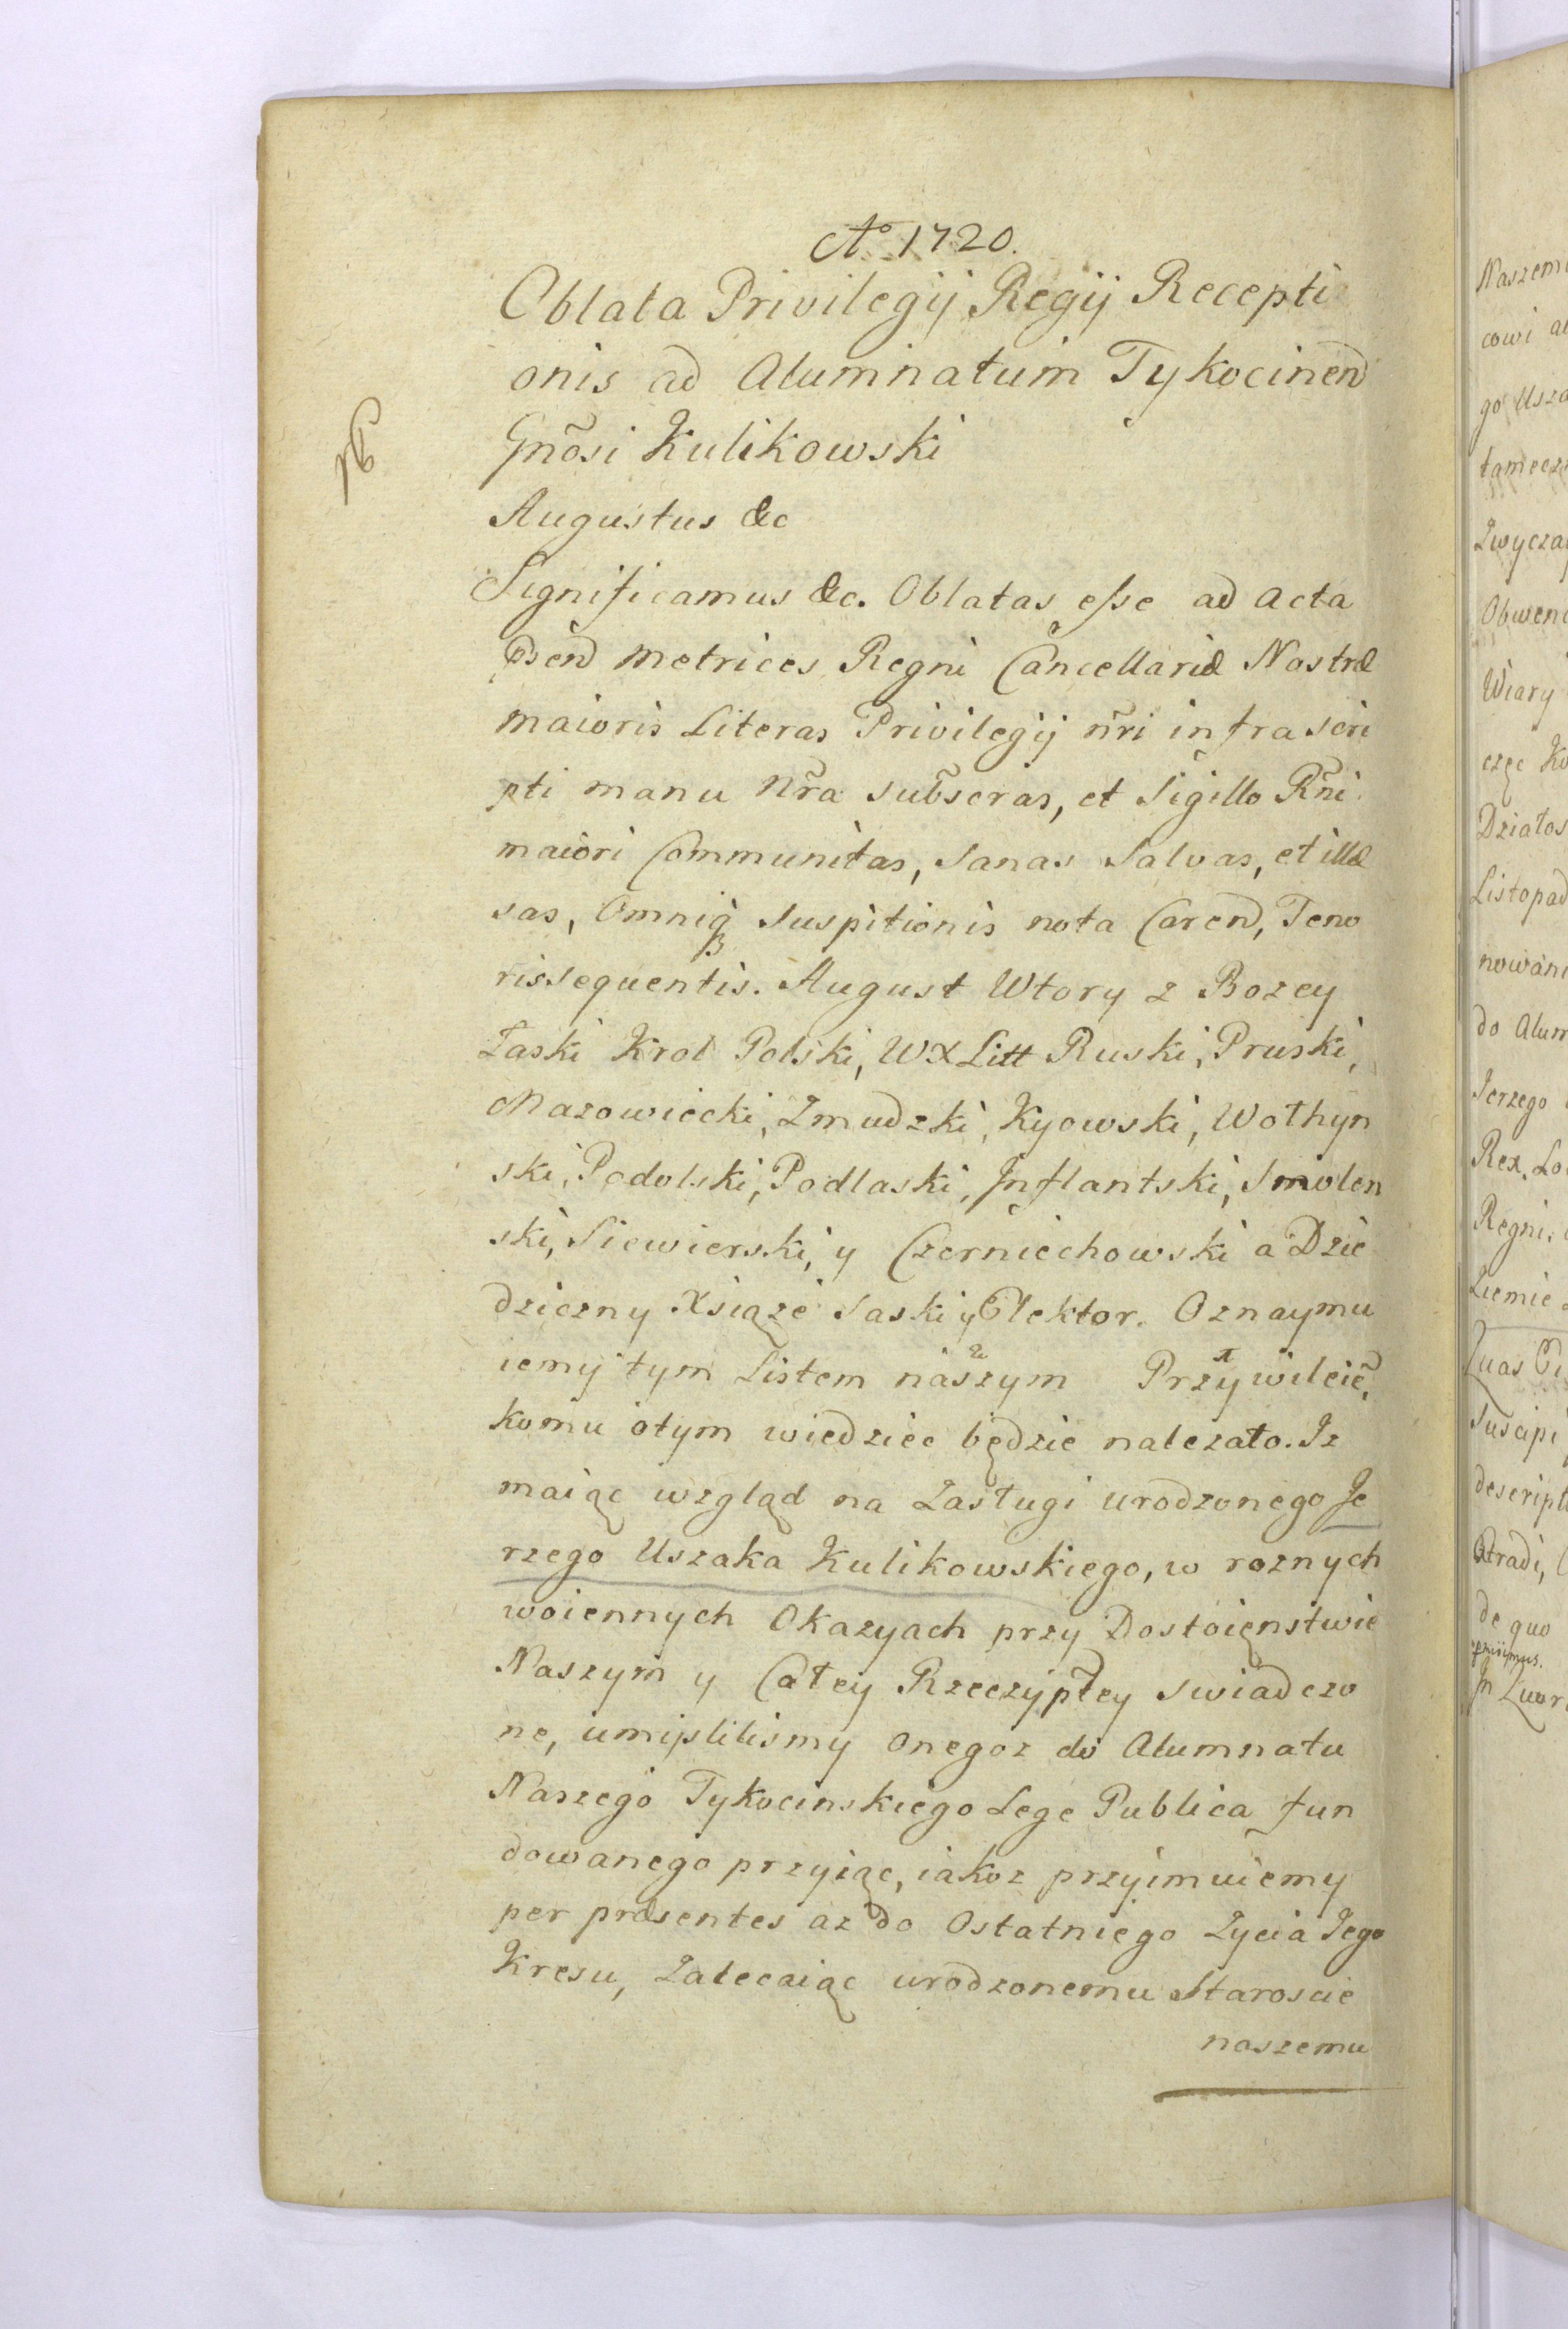 Aº 1720.
Oblata Privilegij Regij Recepti
onis ad Alumnatum Tykocinen
Gnõsi Kulikowski
Augustus &c
Significamus &c. Oblatas esse ad Acta
Pñen Metrices Regni Cancellariæ Nostræ
maioris Literas Privilegij ñri infrascri
pti manu Nr̃a sub̃scras, et Sigillo Rñi
maiori Communitas, Sanas Salvas, et illæ
sas, Omniq3 Suspitionis nota Caren, Teno
rissequentis. August Wtory z Bozey
Łaski Krol Polski, WXLitt Ruski, Pruski,
Mazowiecki, Zmudzki, Kyowski, Wołhyn
ski, Podolski, Podlaski, Inflantski, Smolen
ski, Siewierski, y Czerniechowski a Dzie
dziczny Xsiąze Saski y Elektor. Oznaymu
iemy tym Listem naszym Przywileie,
komu otym wiedziec będzie nalezało. Iz
maiąc wzgląd na Zasługi urodzonego Je
rzego Uszaka Kulikowskiego, w roznych
woiennych Okazyach przy Dostoięnstwie
Naszym y Całey Rzeczyptey swiadczo
ne, umyslilismy onegoz do Alumnatu
Naszego Tykocinskiego Lege Publica fun
dowanego przyiąc, iakoz przyimuiemy
per præsentes az do Ostatniego Zycia Jego
Kresu, Zalecaiąc urodzonemu Staroscie
naszemu
Naszemu
cowi
Listopad
Rex.
Regni,
de quo